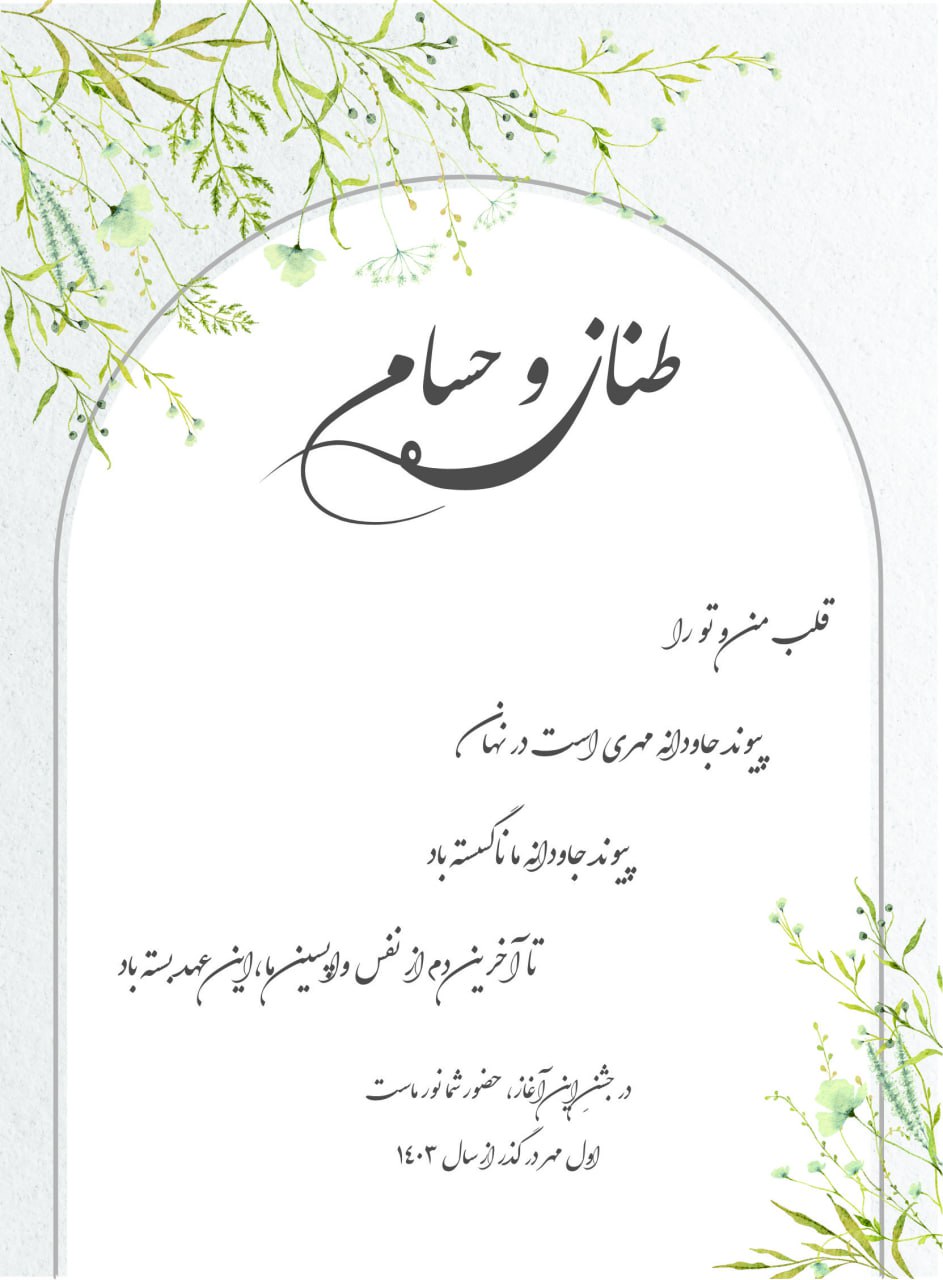 طناز و حسام
قلب من و تو را
پیوند جاودانه مهری است در نهان
پیوند جاودانه ما ناگسسته باد
تا آخرین دم از نفس واپسین ما، این عهد بسته باد
در جشنِ این آغاز، حضور شما نور ماست
اول مهر در گذر از سال ۱۴۰۳